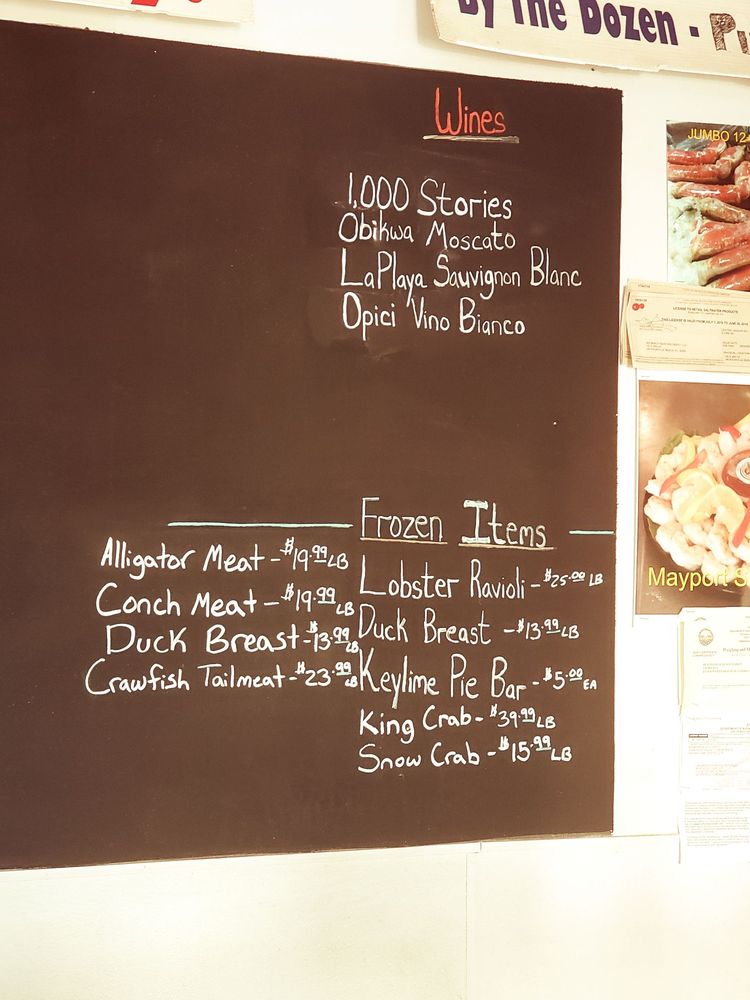 By The Dozen -
Wines
1,000 Stories
Obikwa Moscato
LaPlaya Sauvignon Blanc
Opici Vino Bianco
Frozen Items
Alligator Meat - $19.99 LB
Conch Meat - $19.99 LB
Duck Breast - $13.99 LB
Crawfish Tailmeat - $23.99 LB
Lobster Ravioli - $25.00 LB
Duck Breast - $13.99 LB
Keylime Pie Bar - $5.00 EA
King Crab - $39.99 LB
Snow Crab - $15.99 LB
JUMBO 12
LICENSE TO RETAIL SALTWATER PRODUCTS
Mayport S